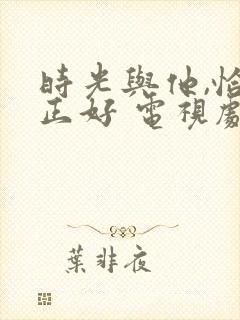 時光與他,恰
正好 電視劇
葉非夜